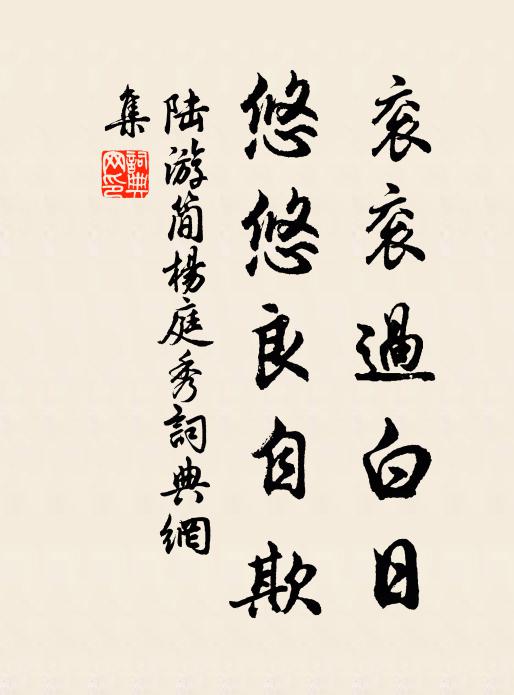 衮衮過白日
悠悠良自欺
陆游简楊庭秀詞典網
集
詞典
网印